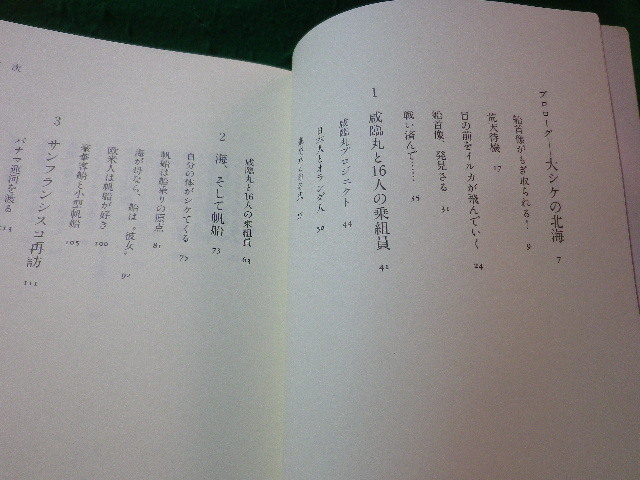 プロローグ―大シケの北海 7
船首像がもぎ取られる! 9
荒天待機 17
目の前をイルカが飛んでいく 24
船首像、発見さる 31
戦い済んで…… 35
1 咸臨丸と16人の乗組員 41
咸臨丸プロジェクト 44
日本人とオランダ人 50
咸臨丸と16人の乗組員 63
2 海、そして帆船 73
自分の体がシケてくる 75
帆船は船乗りの原点 81
海が母なら、船は“彼女” 92
欧米人は帆船が好き 100
豪華客船と小型帆船 105
3 サンフランシスコ再訪 111
パナマ運河を渡る 113
次